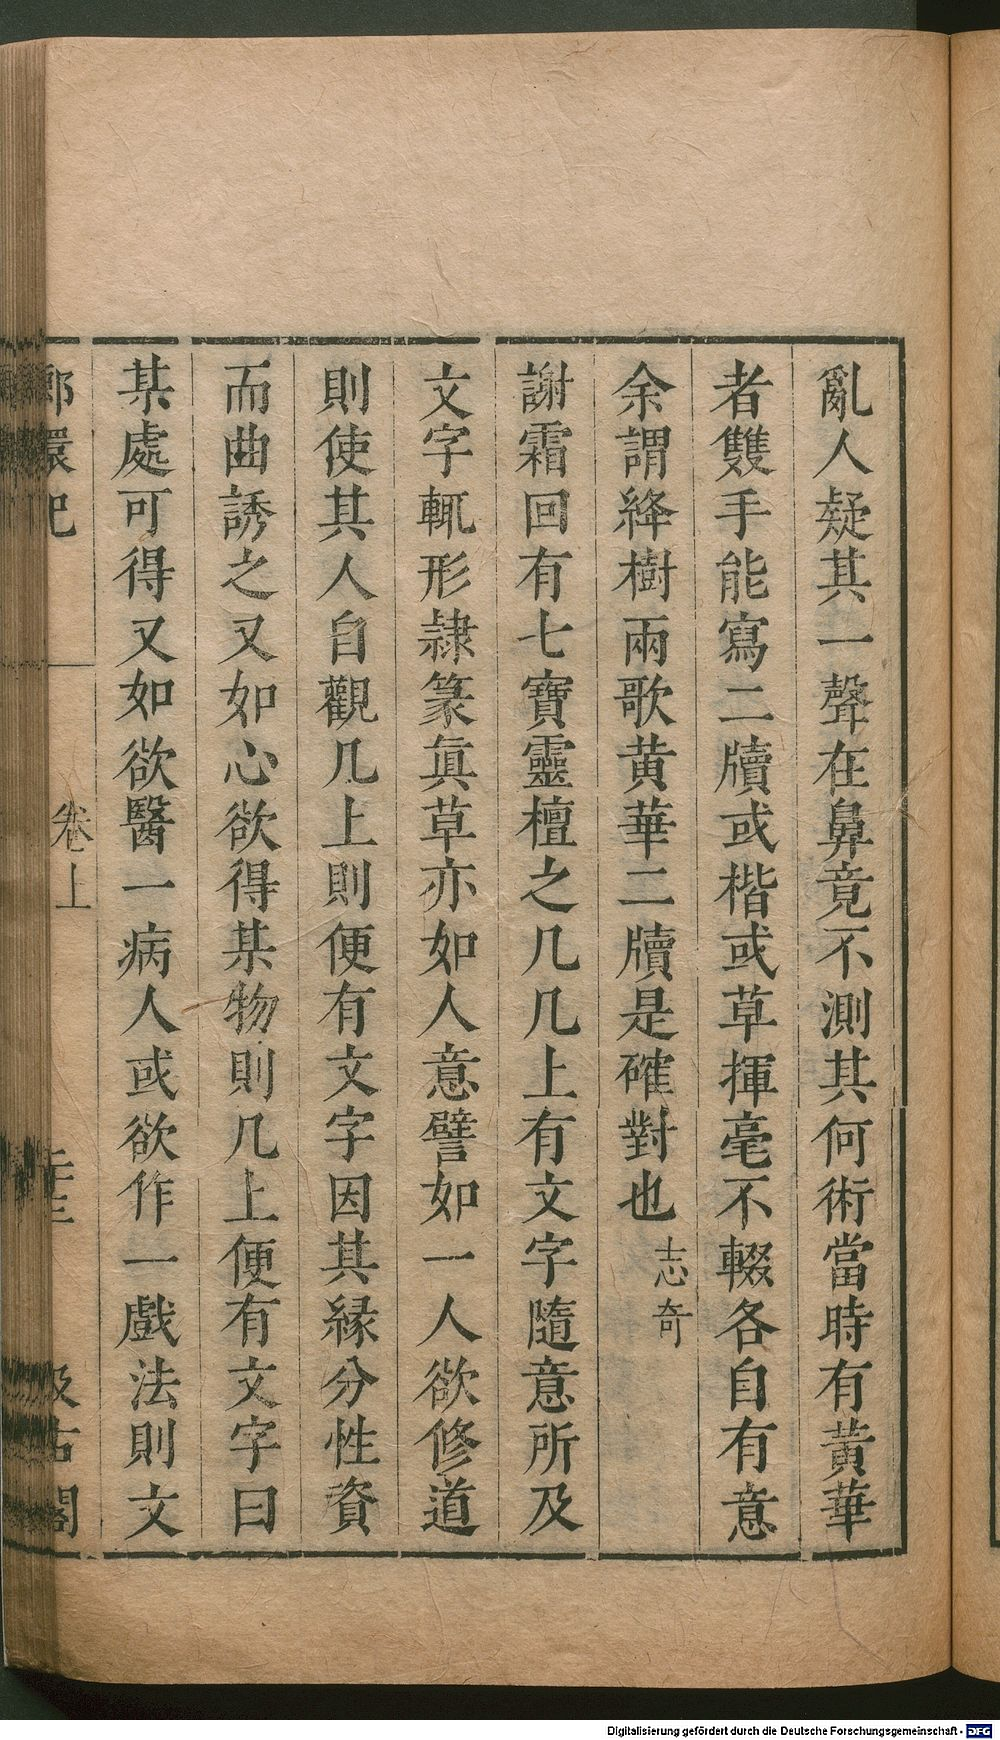 亂人疑其一聲在鼻竟不測其何術當時有黃華
者雙手能寫二牘或楷或草揮毫不輟各自有意
余謂絳樹兩歌黃華二牘是確對也 志奇
謝霜回有七寶靈檀之几几上有文字隨意所及
文字輒形隷篆眞草亦如人意譬如一人欲修道
則使其人自觀几上則便有文字因其縁分性資
而曲誘之又如心欲得某物則几上便有文字曰
某處可得又如欲醫一病人或欲作一戲法則文
卷上
Digitalisierung gefördert durch die Deutsche Forschungsgemeinschaft - DFG